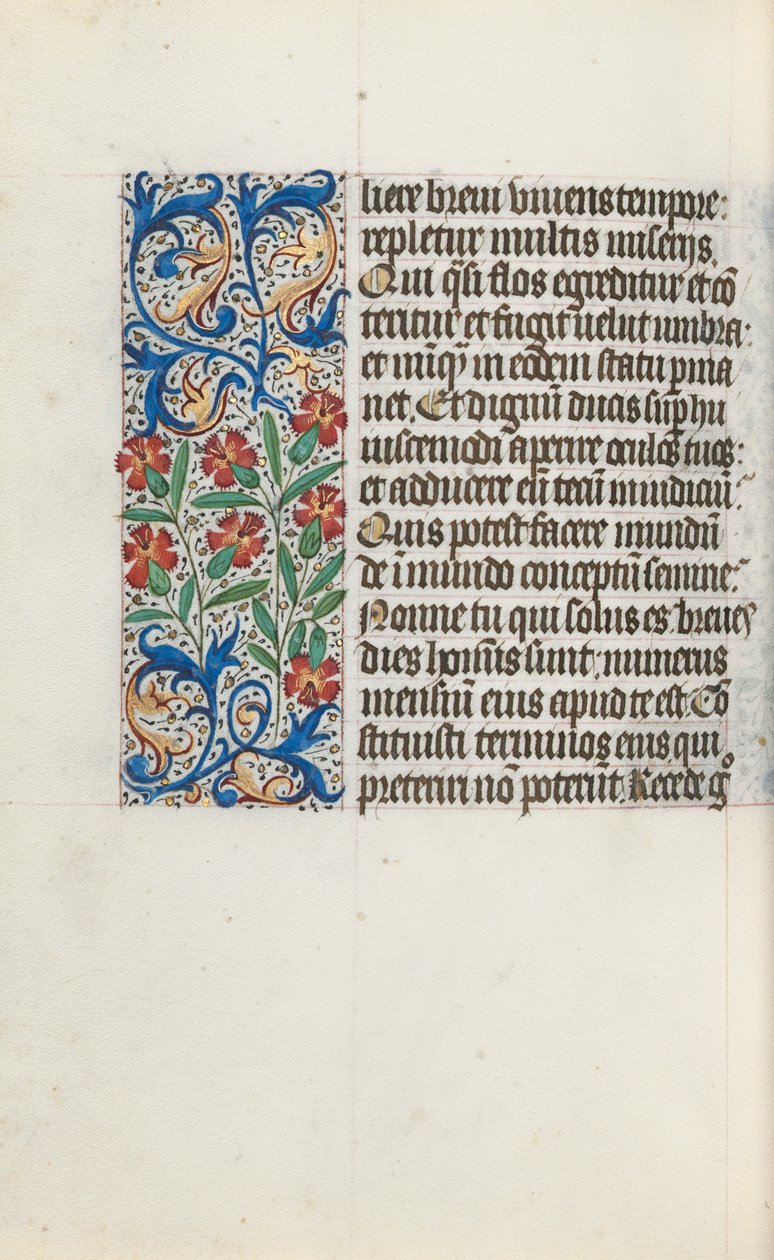 liere breui viuens tempore:
repletur multis miserijs.
Qui q̄si flos egreditur et cō
teritur et fugit uelut umbra:
et nūq̄ in eodem statu p̄ma
net. Et dignū ducis sup̄ hu
iuscemodi aperire oculos tuos:
et adducere eū tecū in iudiciū.
Quis potest facere mundū
de īmundo conceptū semine:
Nonne tu qui solus es. breues
dies hoīnis sunt: numerus
mensiū eius apud te est. Cō
stituisti terminos eius qui
preteriri nō poterūt. Recede gͦ